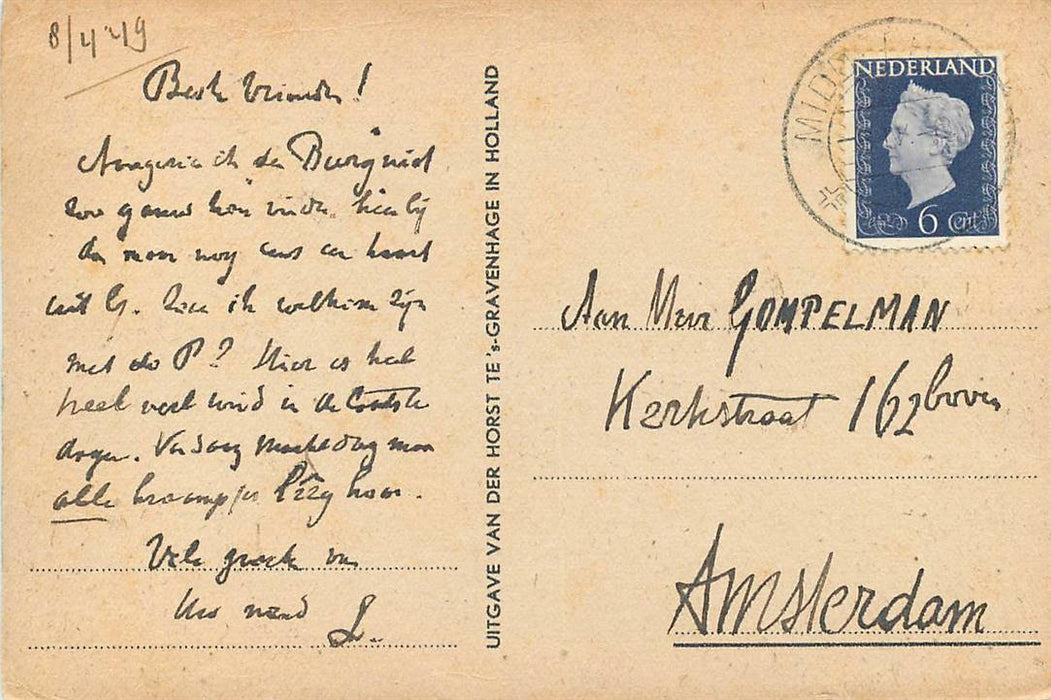 8/4 '49
Beste Vrienden!
Aangezien ik de Burg niet
zoo gauw kon vinden, hierbij
dan maar nog eens een kaart
uit G. Zou ik welkom zijn
met de P? Hier is het
heel veel wind in de laatste
dagen. Vandaag
alle
Vele groeten van
Uw vriend
L.
UITGAVE VAN DER HORST TE 's-GRAVENHAGE IN HOLLAND
NEDERLAND
6 cent
MIDD
Aan Mevr GOMPELMAN
Kerkstraat 162 boven
Amsterdam